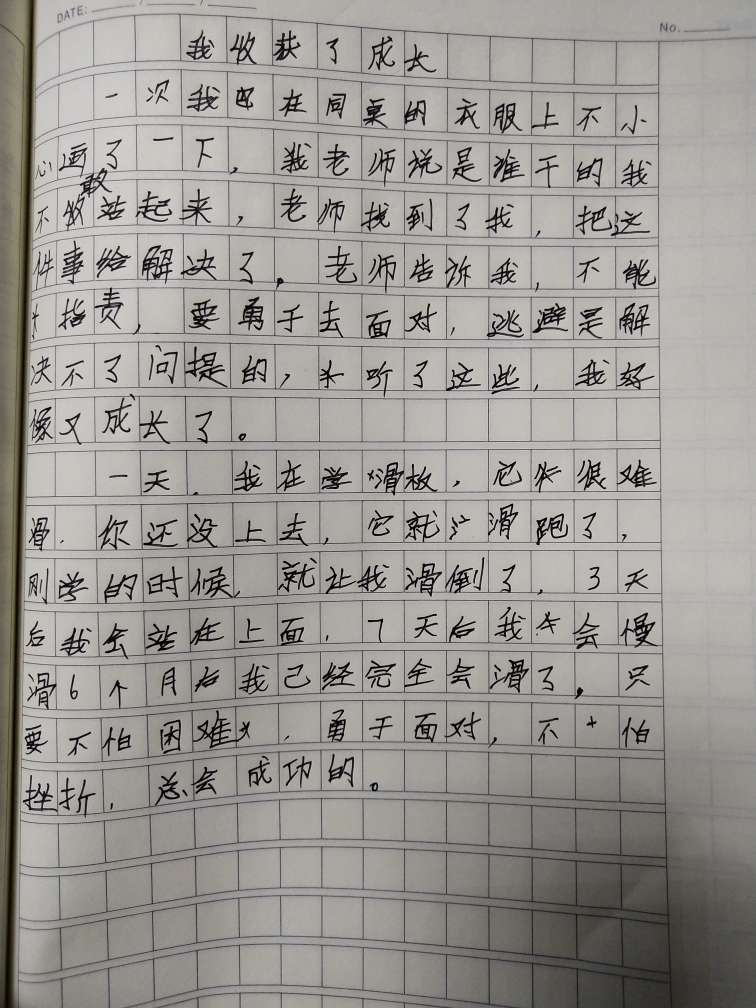 DATE: / /
No.
我收获了成长
一次我在同桌的衣服上不小
心画了一下，我老师说是谁干的我
不敢站起来，老师找到了我，把这
件事给解决了。老师告诉我，不能
指责，要勇于去面对，逃避是解
决不了问提的，听了这些，我好
像又成长了。
一天，我在学滑板，它很难
滑.你还没上去，它就滑跑了，
刚学的时候，就让我滑倒了，3天
后我会站在上面，7天后我会慢
滑6个月后我己经完全会滑了。只
要不怕困难，勇于面对，不怕
挫折，总会成功的。